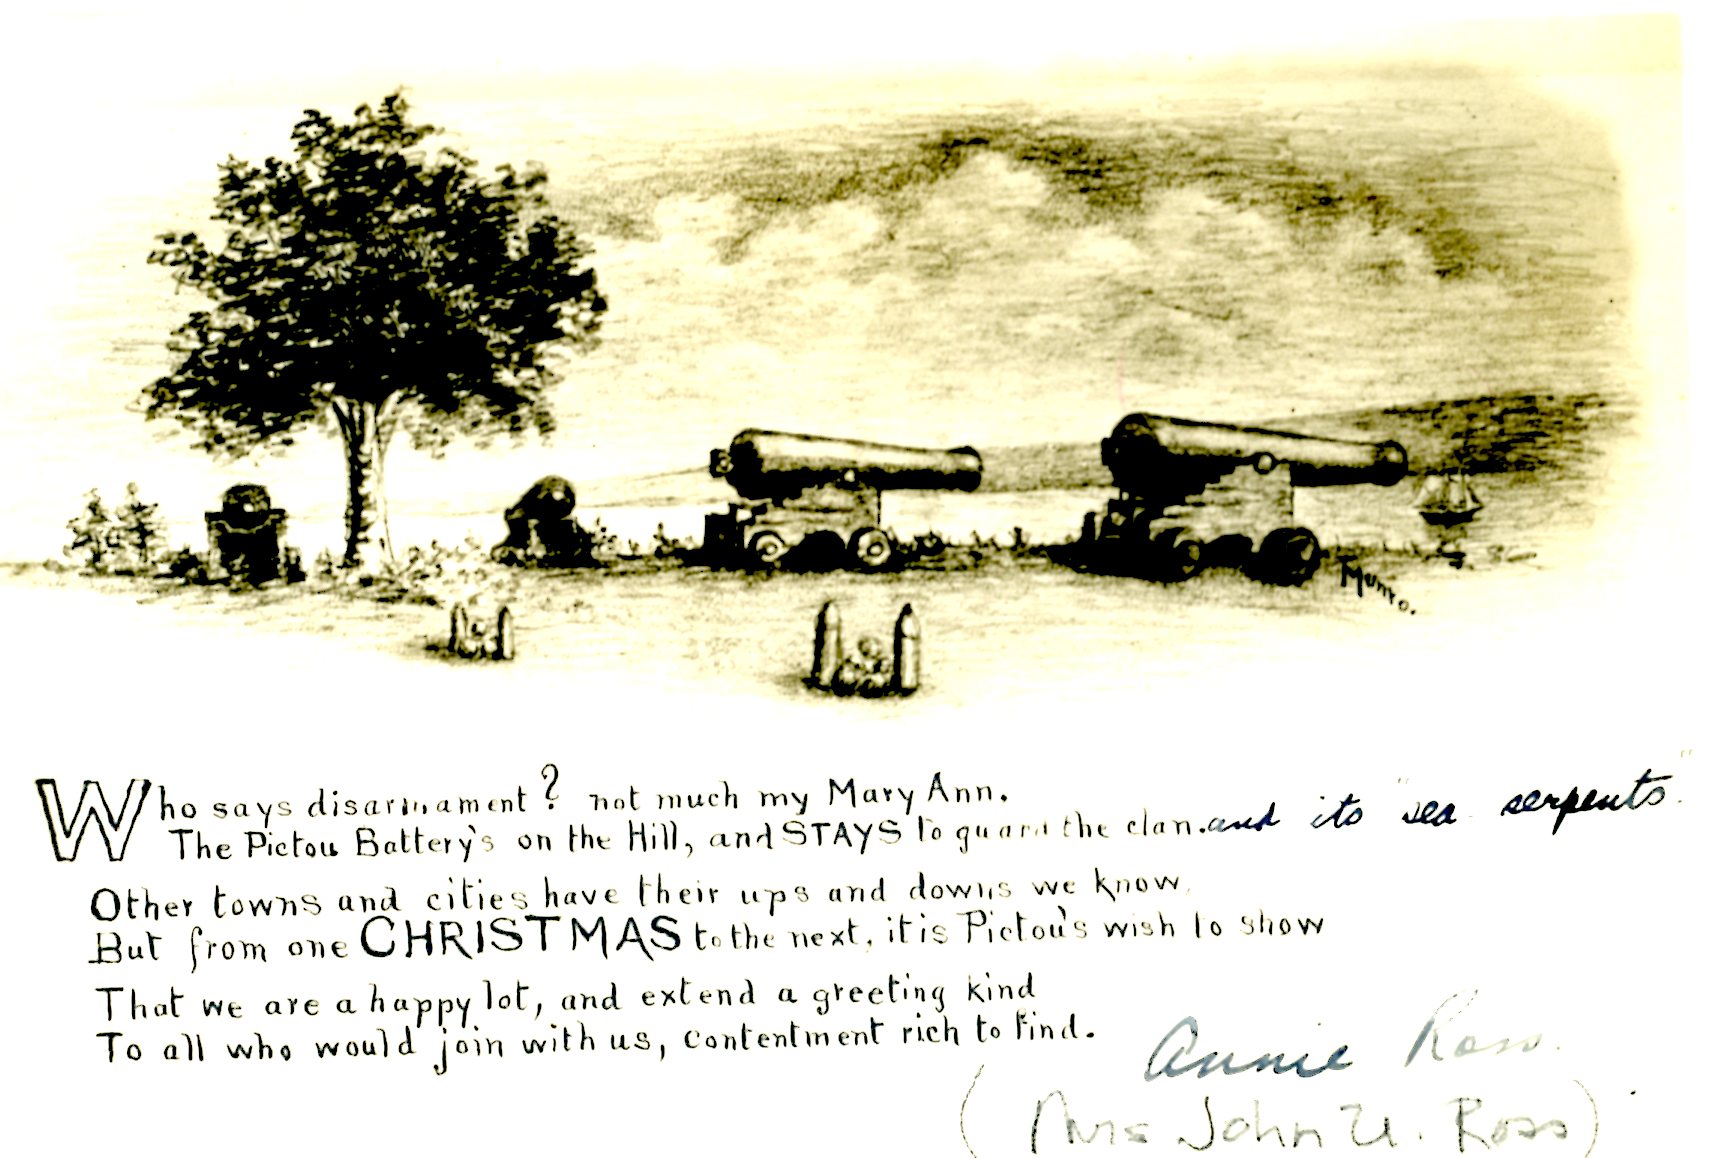 Munro.
Who says disarmament? not much my Mary Ann.
The Pictou Battery's on the Hill, and STAYS to guard the clan. and its "sea serpents"
Other towns and cities have their ups and downs we know,
But from one CHRISTMAS to the next, it is Pictou's wish to show
That we are a happy lot, and extend a greeting kind
To all who would join with us, contentment rich to find.
Annie Ross.
(Mrs John U. Ross)